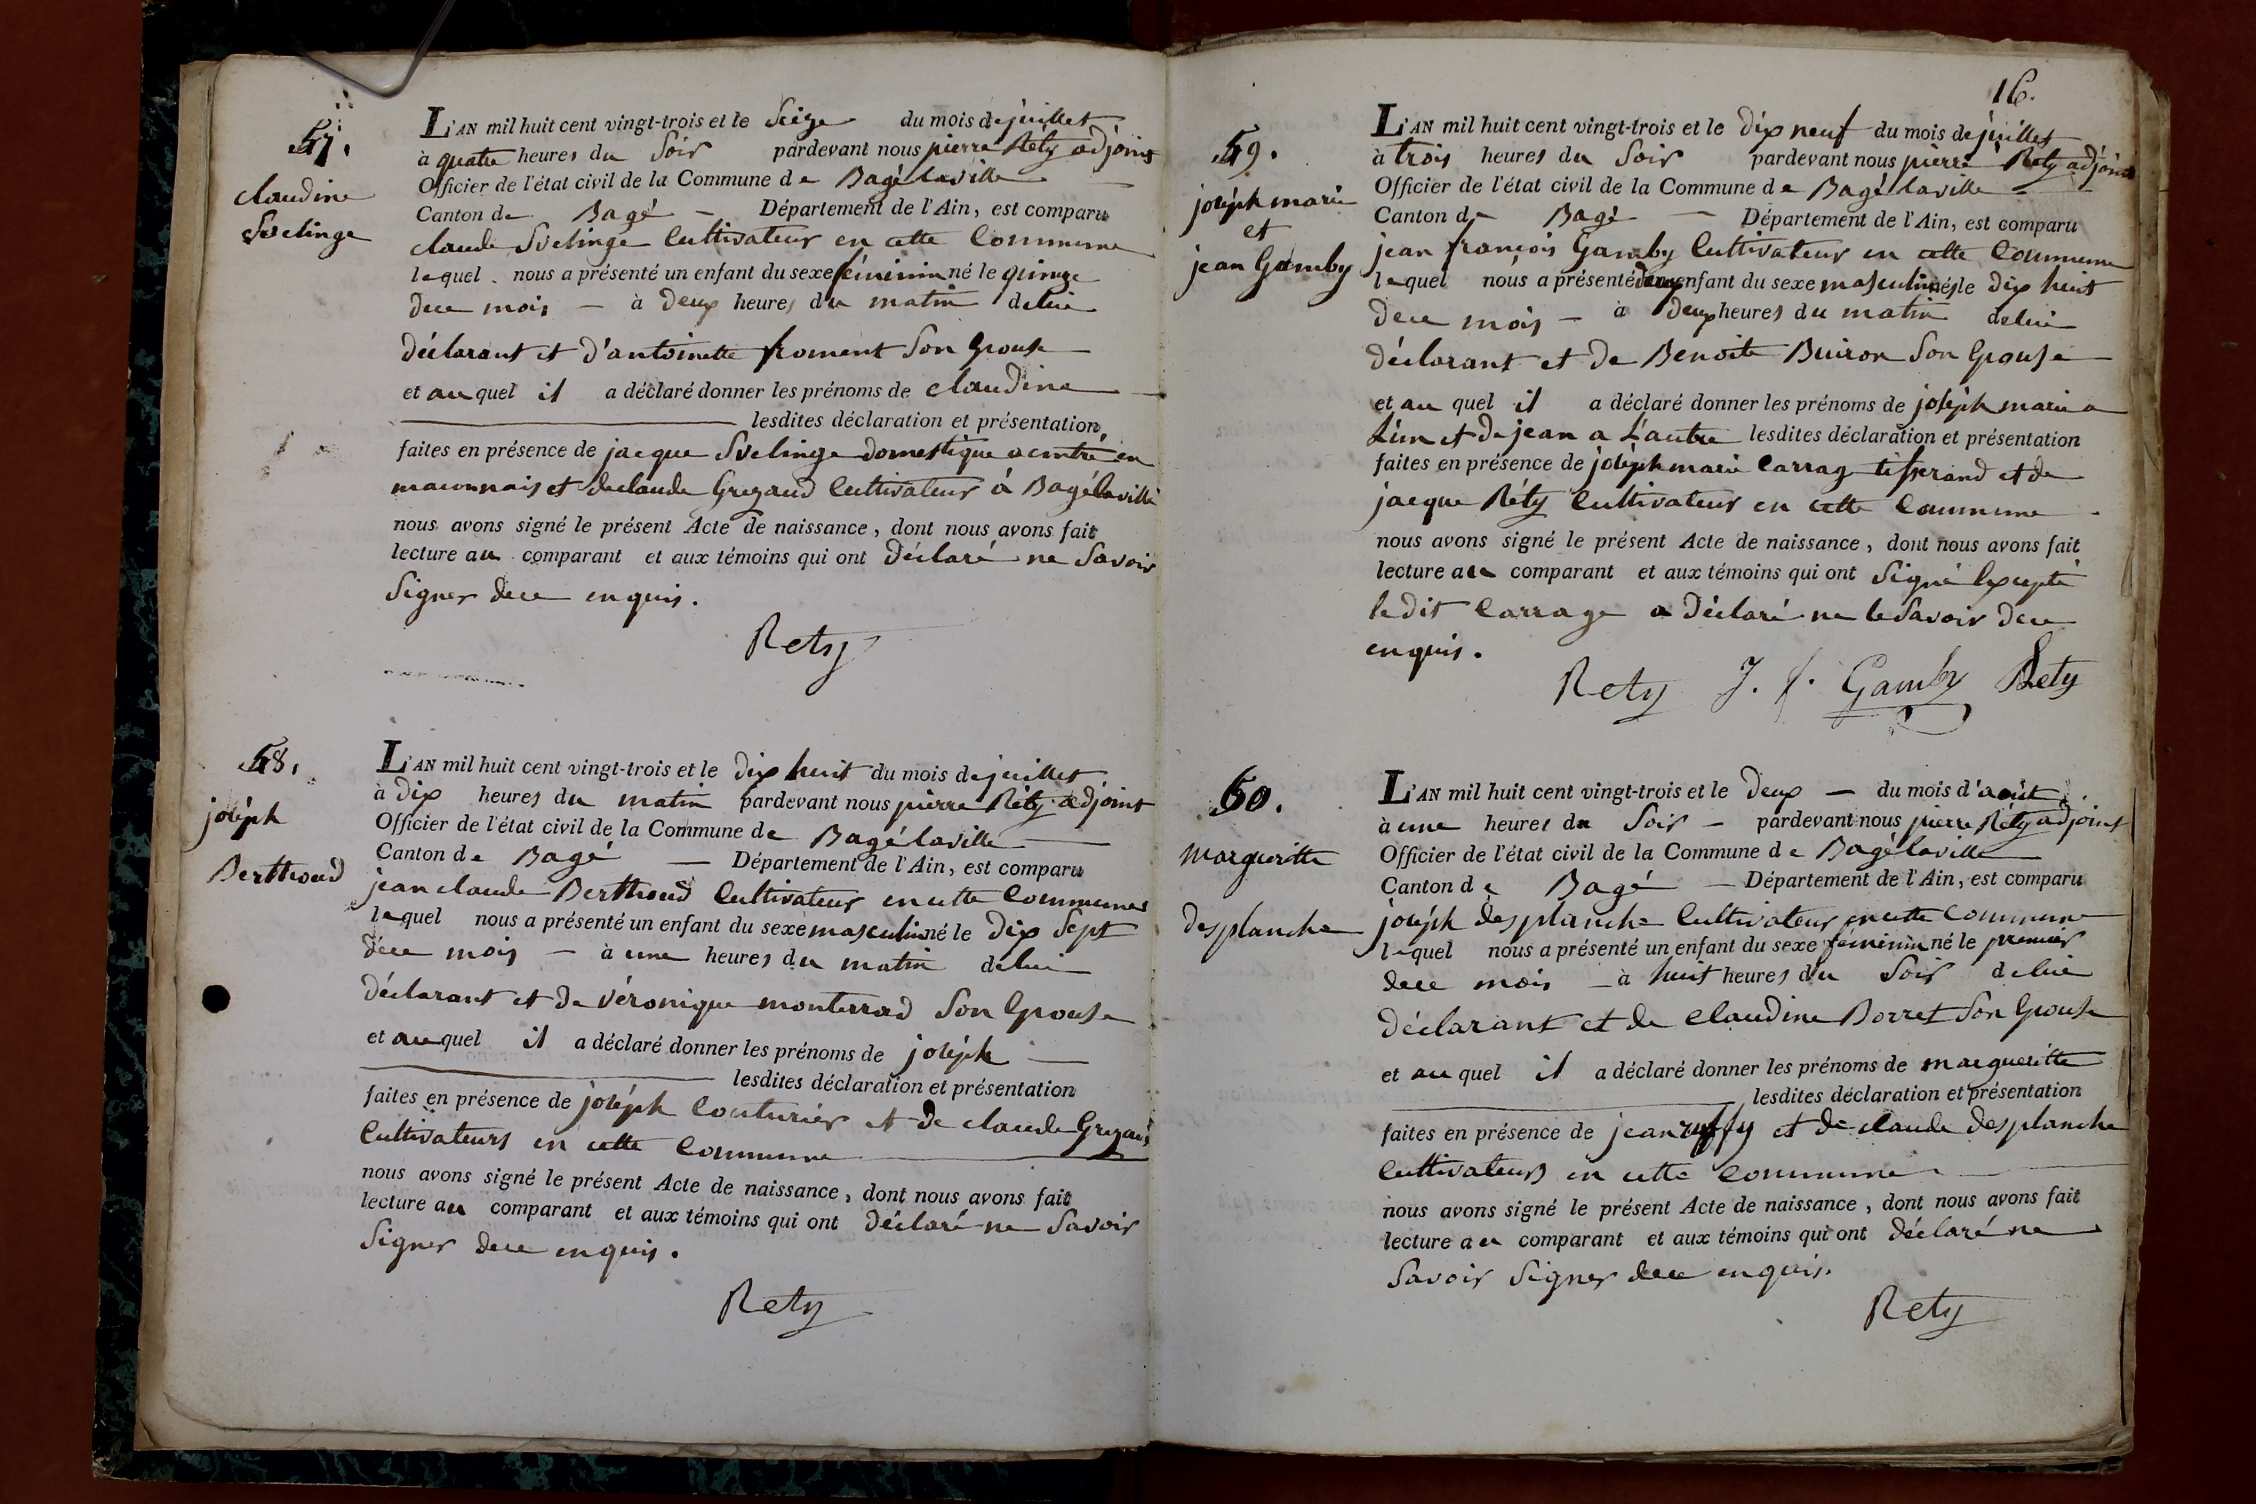 57.
claudine
Svelinge
L'AN mil huit cent vingt-trois et le Seize du mois de juillet
à quatre heures du Soir pardevant nous pierre Réty adjoint
Officier de l'état civil de la Commune de Bagé laville
Canton de Bagé — Département de l'Ain, est comparu
claude Svelinge Cultivateur en cette Commune
lequel nous a présenté un enfant du sexe féminin né le quinze
dece mois — à deux heures du matin delui
déclarant et d'antoinette froment Son Epouse
et au quel il a déclaré donner les prénoms de claudine
lesdites déclaration et présentation
faites en présence de jacque Svelinge domestique a cintré en
maconnais et declaude Gregaud Cultivateur à Bagélaville
nous avons signé le présent Acte de naissance, dont nous avons fait
lecture au comparant et aux témoins qui ont déclaré ne Savoir
Signer dece enquis.
Rety
58.
joséph
Berthoud
L'AN mil huit cent vingt-trois et le dix huit du mois de juillet
à dix heures du matin pardevant nous pierre Réty adjoint
Officier de l'état civil de la Commune de Bagélaville
Canton de Bagé — Département de l'Ain, est comparu
jean claude Berthoud Cultivateur en cette Commune
lequel nous a présenté un enfant du sexe masculin né le dix Sept
dece mois — à une heures du matin delui
déclarant et de véronique monterrad Son Epouse
et au quel il a déclaré donner les prénoms de joséph
lesdites déclaration et présentation
faites en présence de joséph Couturier et de claude Gregaud
Cultivateurs en cette Commune
nous avons signé le présent Acte de naissance, dont nous avons fait
lecture au comparant et aux témoins qui ont déclaré ne Savoir
Signer dece enquis.
Rety
16.
59.
joséph marie
et
jean Gamby
L'AN mil huit cent vingt-trois et le dix neuf du mois de juillet
à trois heures du Soir pardevant nous pierre Réty adjoint
Officier de l'état civil de la Commune de Bagé laville
Canton de Bagé — Département de l'Ain, est comparu
jean françois Gamby Cultivateur en cette Commune
lequel nous a présenté deux enfant du sexe masculin nés le dix huit
dece mois — à deux heures du matin delui
déclarant et de Benoite Buiron Son Epouse
et au quel il a déclaré donner les prénoms de joséph marie a
L'un et de jean a L'autre lesdites déclaration et présentation
faites en présence de joséph marie Carrag tisserand et de
jacque Réty Cultivateur en cette Commune
nous avons signé le présent Acte de naissance, dont nous avons fait
lecture au comparant et aux témoins qui ont Signé Excepté
le dit Carrage a déclaré ne le Savoir dece
enquis.
Rety J. f. Gamby Rety
60.
margueritte
desplanche
L'AN mil huit cent vingt-trois et le deux — du mois d'août
à une heures du Soir — pardevant nous pierre Réty adjoint
Officier de l'état civil de la Commune de Bagélaville
Canton de Bagé — Département de l'Ain, est comparu
joséph desplanche Cultivateur en cette Commune
lequel nous a présenté un enfant du sexe féminin né le premier
dece mois — à huit heures du Soir delui
déclarant et de claudine Borret Son Epouse
et au quel il a déclaré donner les prénoms de margueritte
lesdites déclaration et présentation
faites en présence de jean ruffy et de claude desplanche
Cultivateurs en cette Commune
nous avons signé le présent Acte de naissance, dont nous avons fait
lecture au comparant et aux témoins qui ont déclaré ne
Savoir Signer dece enquis.
Rety